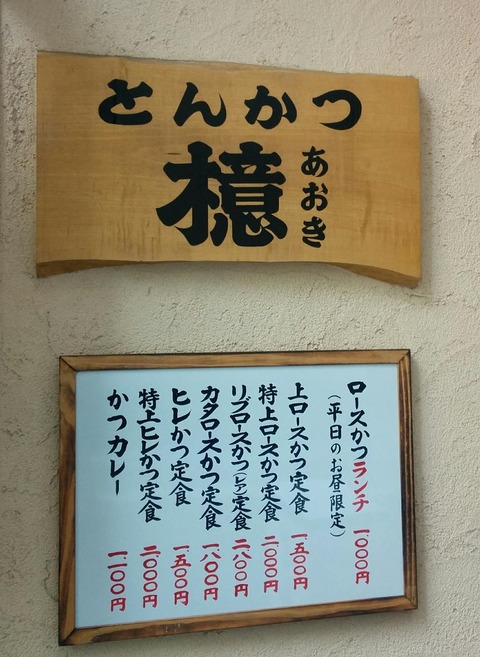 とんかつ
檍
あおき
ロースかつランチ 一、〇〇〇円
(平日のお昼限定)
上ロースかつ定食 一、五〇〇円
特上ロースかつ定食 二、〇〇〇円
リブロースかつ(レア)定食 二、八〇〇円
カタロースかつ定食 一、八〇〇円
ヒレかつ定食 一、五〇〇円
特上ヒレかつ定食 二、〇〇〇円
かつカレー 一、二〇〇円